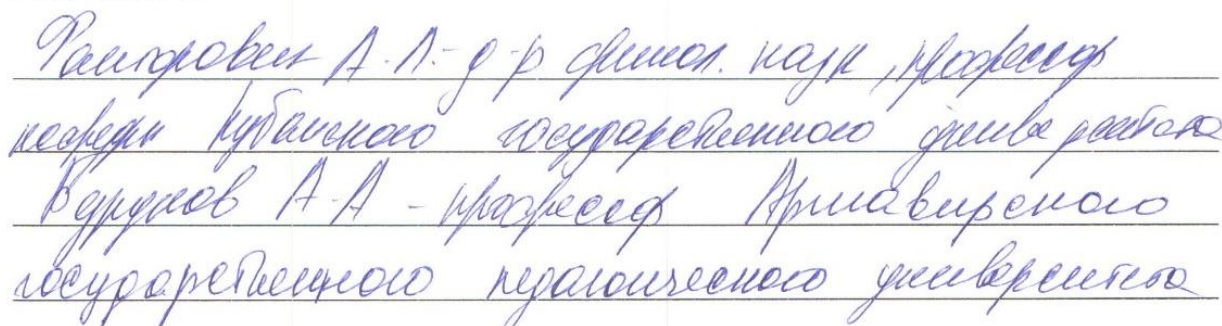 А. Л. - д-р филол. наук, профессор
кафедры Кубанского государственного университета
А. А - профессор Армавирского
государственного педагогического университета